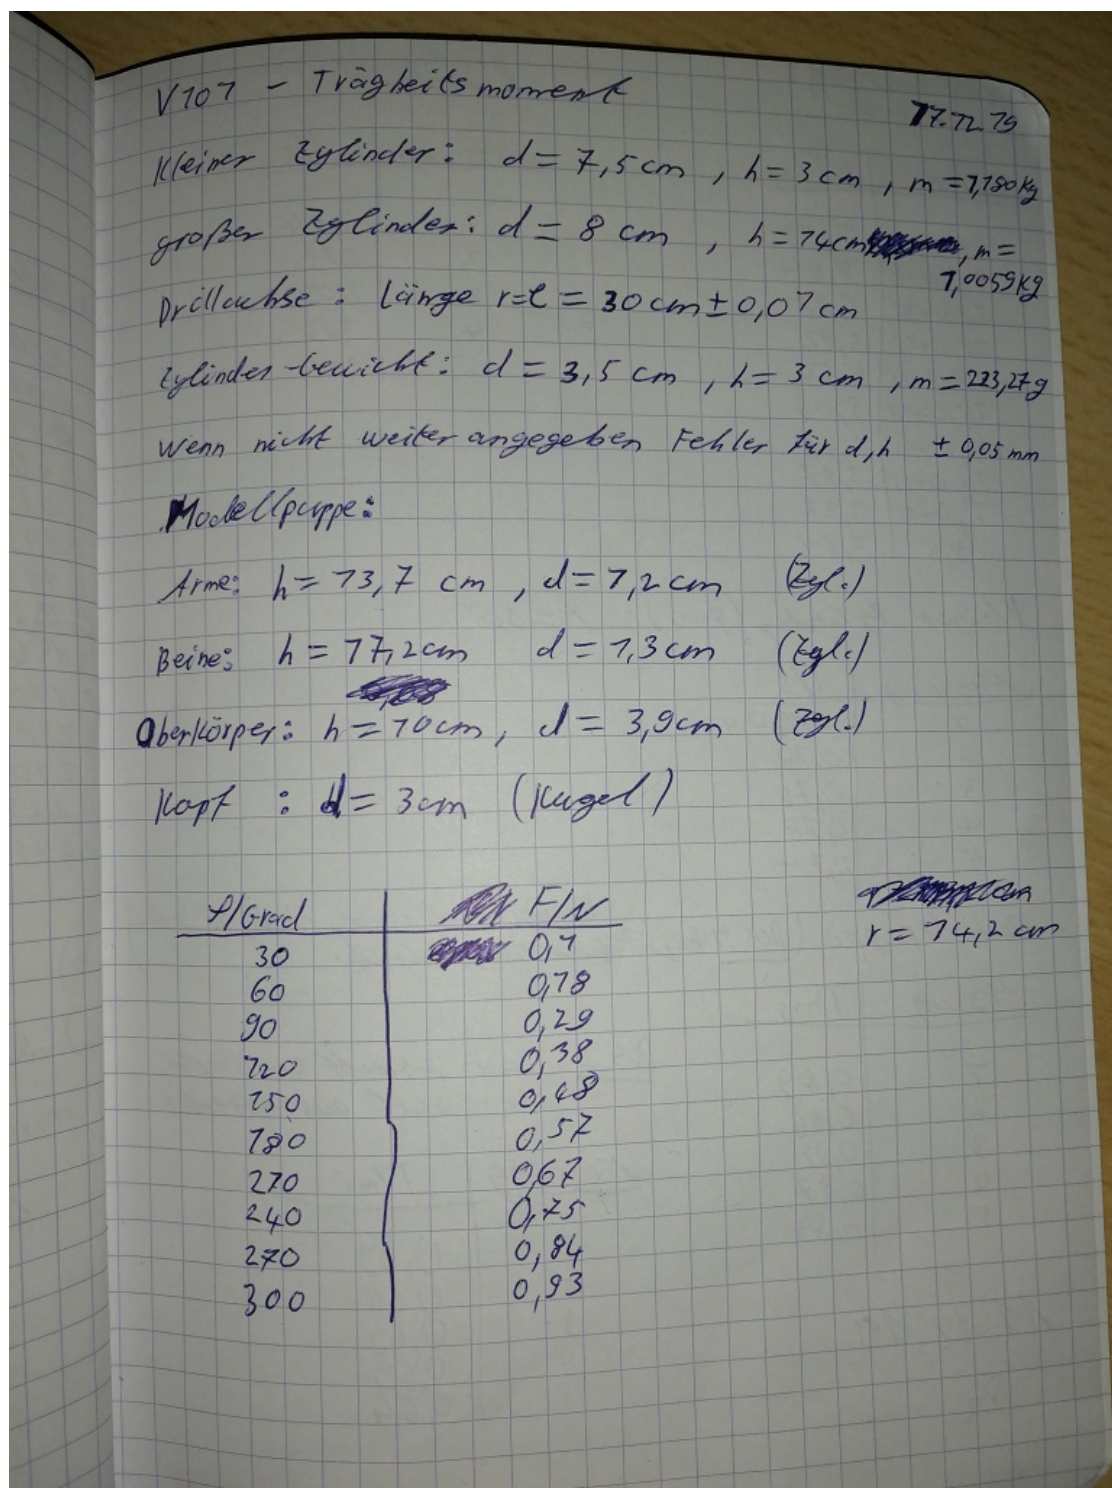 V101 - Trägheitsmoment
11.12.19
Kleiner Zylinder: d = 7,5 cm , h = 3 cm , m = 1,190 kg
großer Zylinder: d = 8 cm , h = 14 cm , m =
1,0059 kg
Drillachse : Länge r=l = 30 cm ± 0,01 cm
Zylinder-Gewicht: d = 3,5 cm , h = 3 cm , m = 223,27 g
Wenn nicht weiter angegeben Fehler für d,h ± 0,05 mm
Modellpuppe:
Arme: h = 13,7 cm , d = 1,2 cm (Zyl.)
Beine: h = 17,2 cm d = 1,3 cm (Zyl.)
Oberkörper: h = 10 cm, d = 3,9 cm (Zyl.)
Kopf : d = 3 cm (Kugel)
φ/Grad F/N
r = 14,2 cm
30 0,1
60 0,18
90 0,29
120 0,38
150 0,48
180 0,57
210 0,67
240 0,75
270 0,84
300 0,93